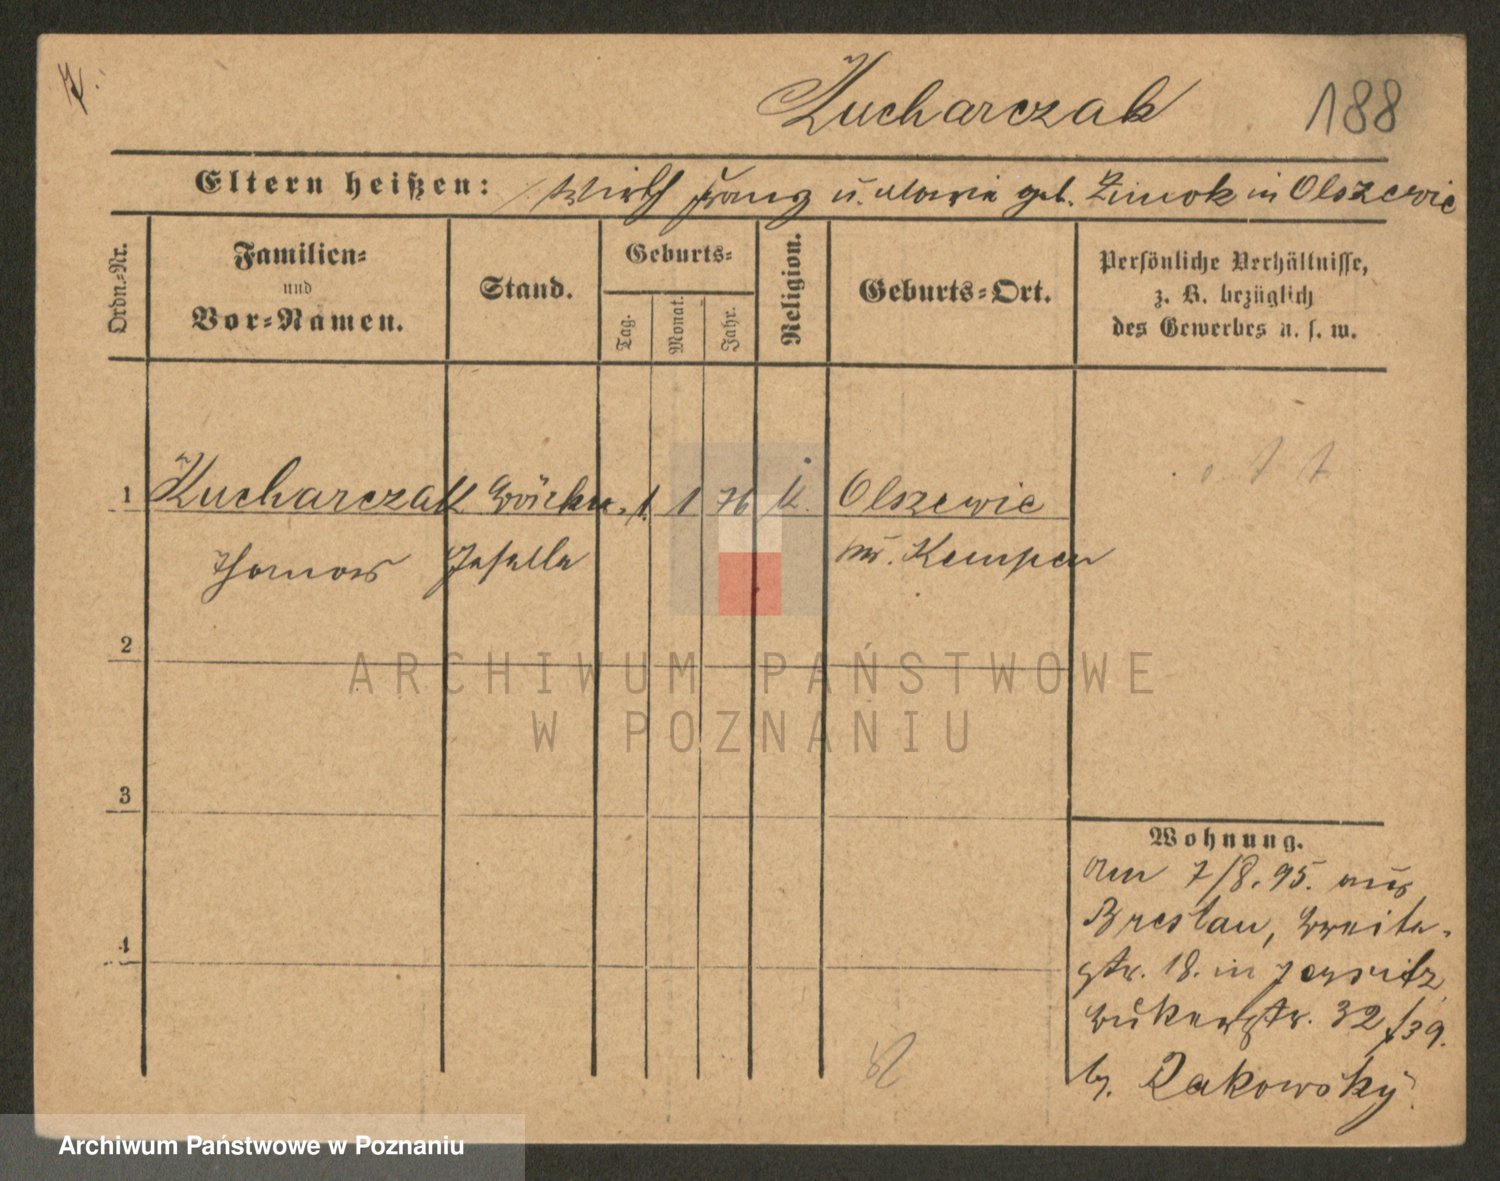 7.
Kucharczak
188
Eltern heißen: Wirth Franz u. Maria geb. Zimok in Olszewie
Ordn.=Nr.
Familien=
und
Vor=Namen.
Stand.
Geburts=
Tag.
Monat.
Jahr.
Religion.
Geburts=Ort.
Persönliche Verhältnisse,
z. B. bezüglich
des Gewerbes u. s. w.
1 Kucharczak 1. 1 76 k. Olszewie
Thomas Geselle Kr. Kempen
2
ARCHIWUM PAŃSTWOWE
W POZNANIU
3
Wohnung.
Am 7/8. 95. aus
Breslau, Breite-
str. 18. in Jersitz
Bukerstr. 32/39.
b. Rakowsky.
4
Archiwum Państwowe w Poznaniu